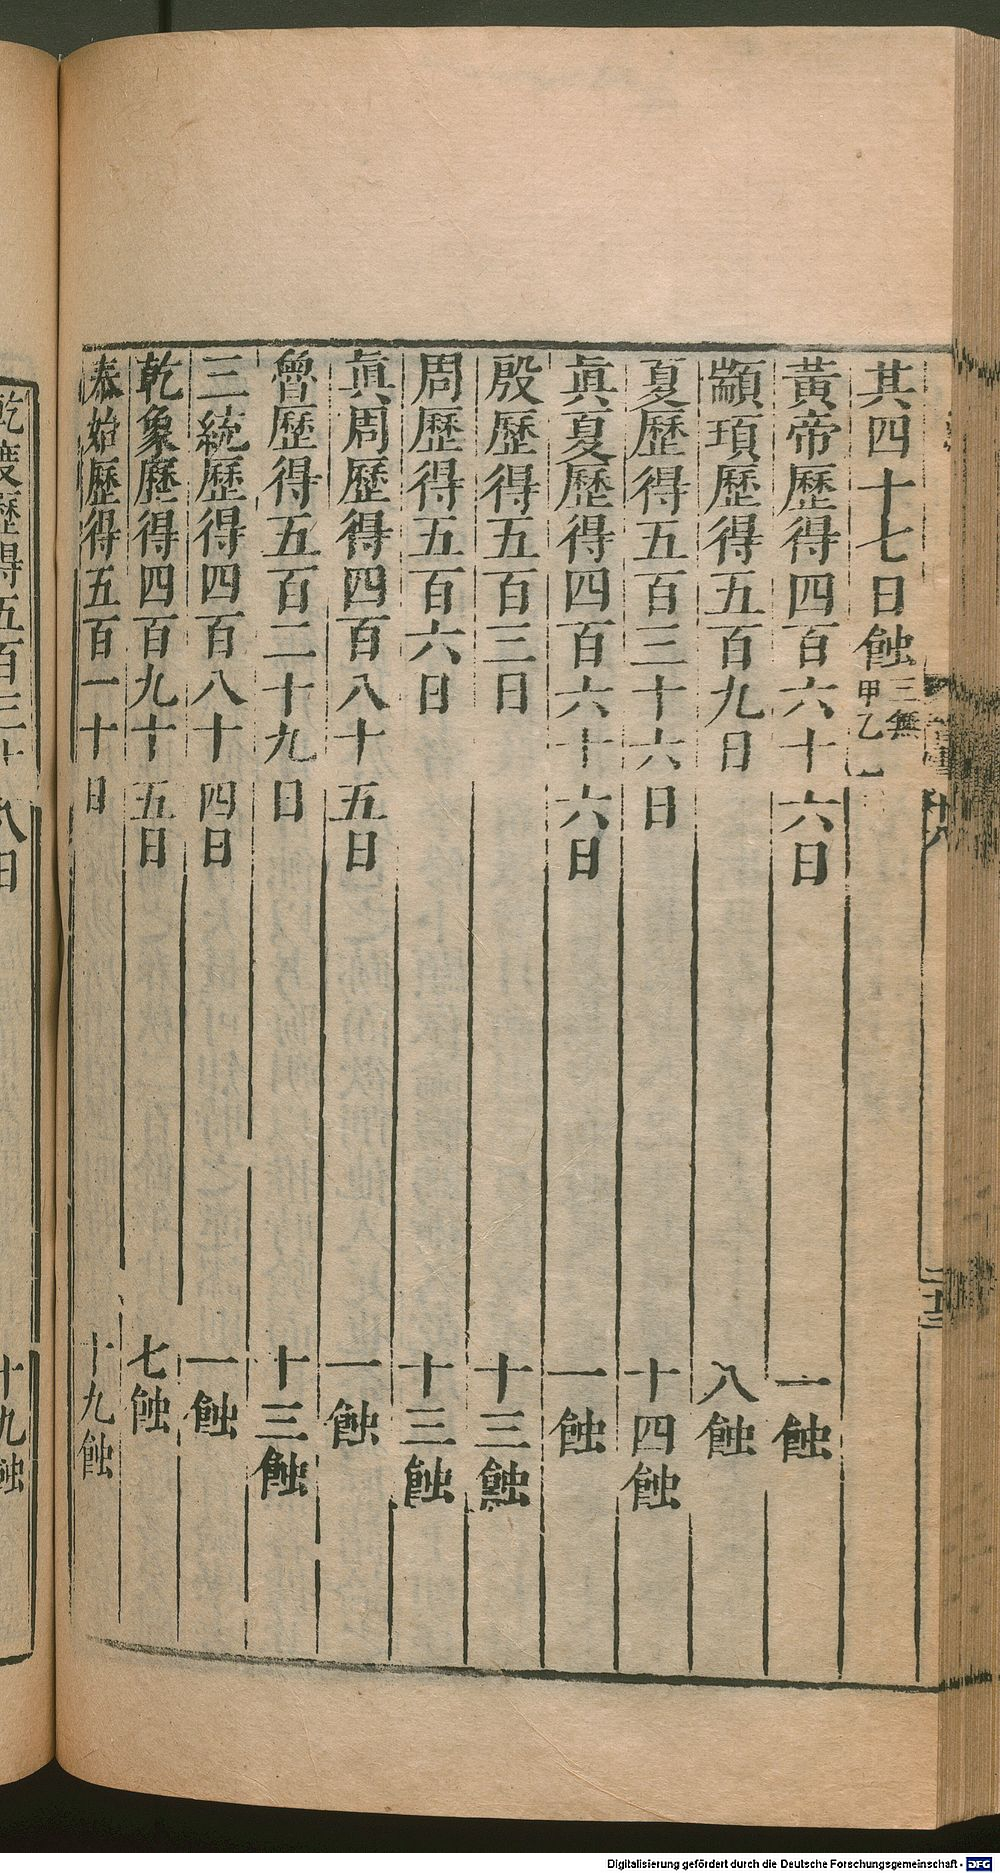 其四十七日蝕三無甲乙
黃帝歷得四百六十六日 一蝕
顓頊歷得五百九日 八蝕
夏歷得五百三十六日 十四蝕
眞夏歷得四百六十六日 一蝕
殷歷得五百三日 十三蝕
周歷得五百六日 十三蝕
眞周歷得四百八十五日 一蝕
魯歷得五百二十九日 十三蝕
三統歷得四百八十四日 一蝕
乾象歷得四百九十五日 七蝕
泰始歷得五百一十日 十九蝕
乾度歷得五百三十八日 十九蝕
Digitalisierung gefördert durch die Deutsche Forschungsgemeinschaft - DFG